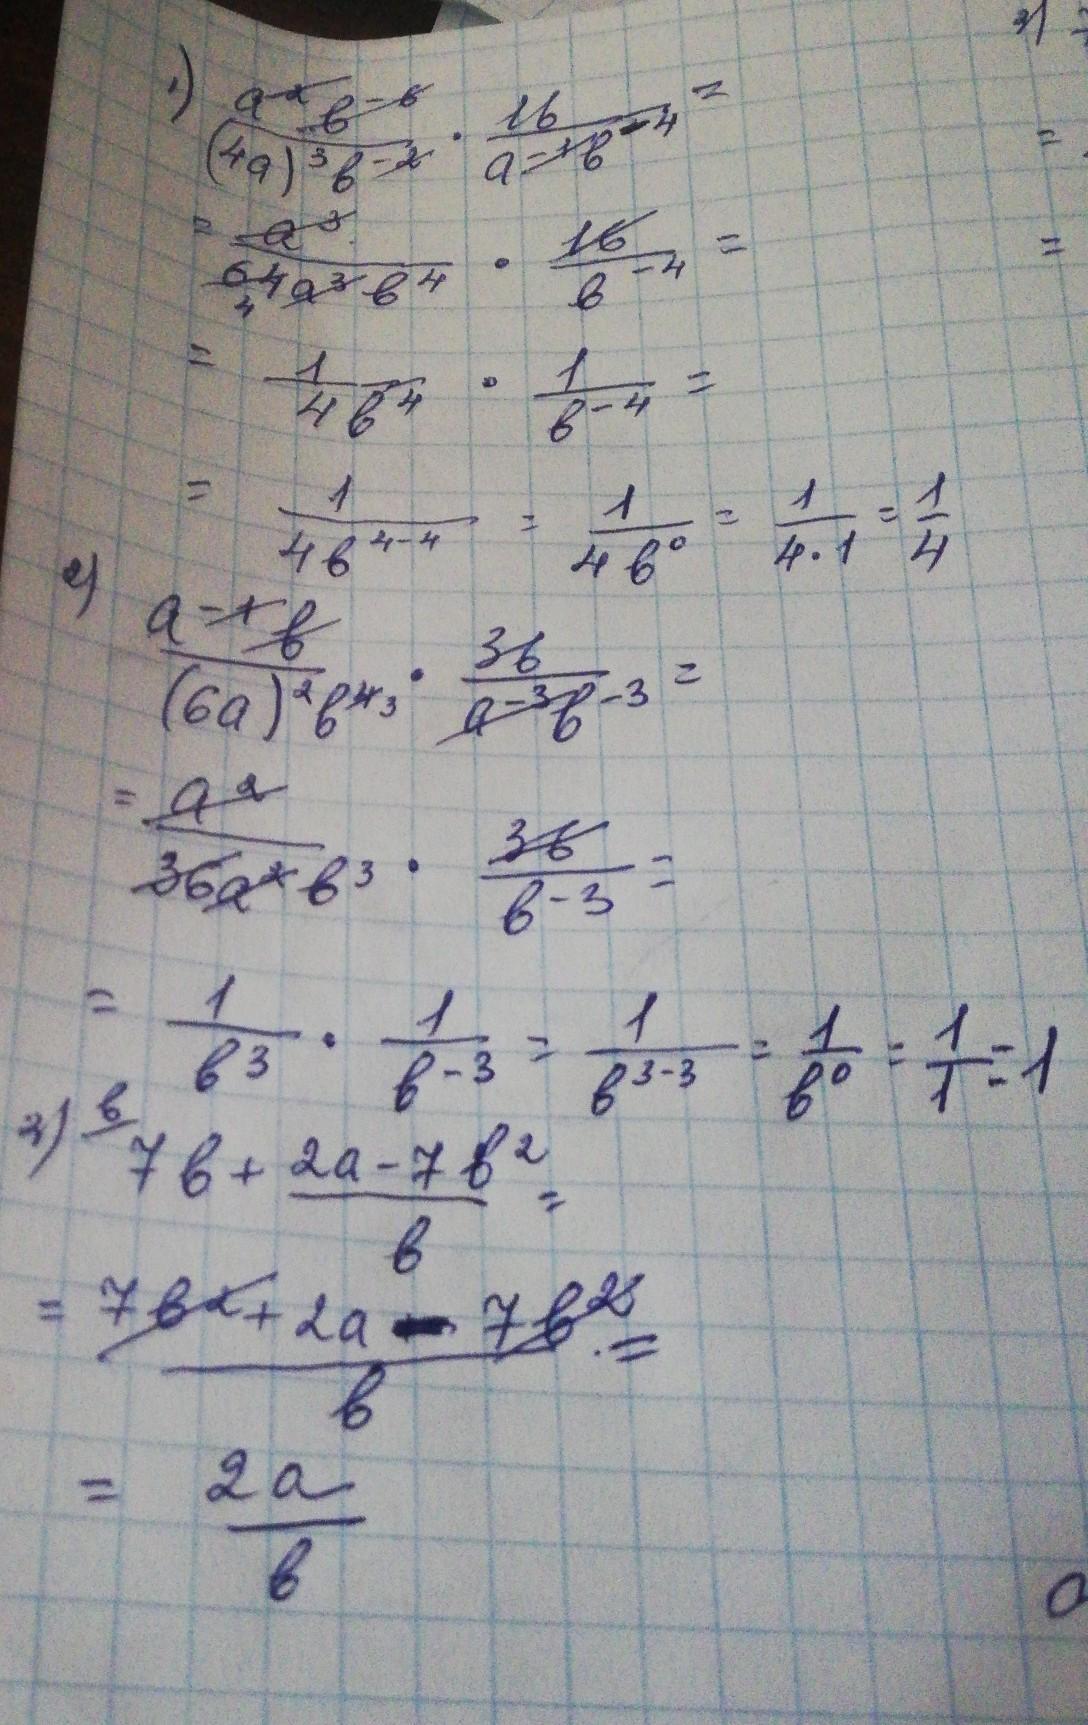 1) a²b⁻⁶/(4a)³b⁻² · 16/a⁻¹b⁻⁴ =
= a³/64a³b⁴ · 16/b⁻⁴ =
4
= 1/4b⁴ · 1/b⁻⁴ =
= 1/4b⁴⁻⁴ = 1/4b⁰ = 1/4·1 = 1/4
2) a⁻¹b/(6a)²b⁴ ₃ · 36/a⁻³b⁻³ =
= a²/36a²b³ · 36/b⁻³ =
= 1/b³ · 1/b⁻³ = 1/b³⁻³ = 1/b⁰ = 1/1 = 1
3) b/ 7b + 2a-7b²/b =
= 7b²+2a-7b²/b =
= 2a/b
3)
=
=
a